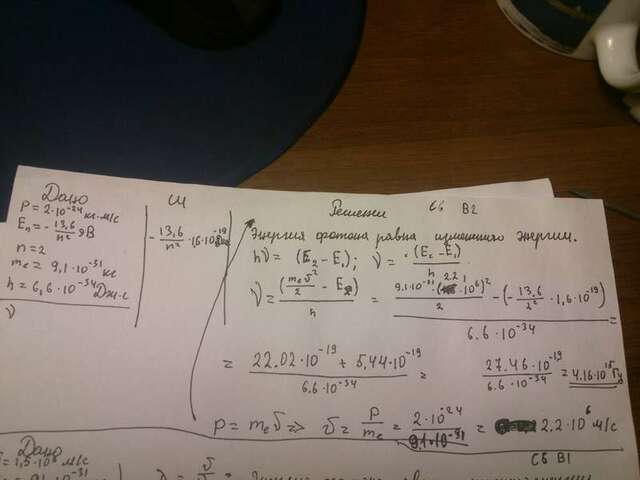 Дано
P = 2·10⁻²⁴ кг·м/с
Eₙ = -13,6/n² эВ
n = 2
mₑ = 9,1·10⁻³¹ кг
h = 6,6·10⁻³⁴ Дж·с
ν
СИ
-13,6/n² ·16·10⁻¹⁹
Решение C6 B2
Энергия фотона равна изменению энергии.
hν = (E₂ - E₁); ν = (E₂ - E₁)/h
ν = (mₑυ²/2 - E₂)/h = (9.1·10⁻³¹·(2.2·10⁶)²/2 - (-13,6/2² ·1,6·10⁻¹⁹))/6.6·10⁻³⁴ =
= (22.02·10⁻¹⁹ + 5,44·10⁻¹⁹)/6.6·10⁻³⁴ = 27.46·10⁻¹⁹/6.6·10⁻³⁴ = 4.16·10¹⁵ Гц
p = mₑυ => υ = P/mₑ = 2·10⁻²⁴/9,1·10⁻³¹ = 2.2·10⁶ м/с
C6 B1
Дано